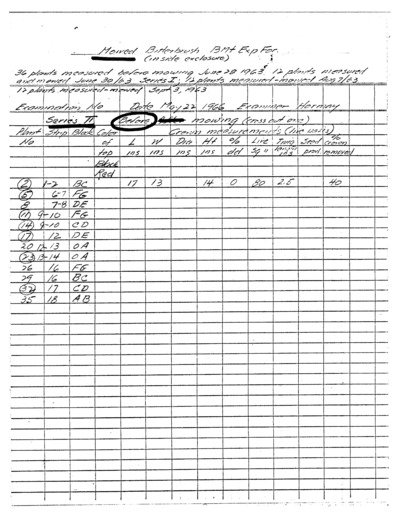 Mowed Bitterbrush Bitt Exp For.
(inside exclosure)
36 plants measured before mowing June 28 1963 12 plants measured
and mowed June 30/63 Series I; 12 plants measured-mowed Aug 7/63
12 plants measured-mowed Sept 3, 1963
Examination No Date May 22 1966 Examiner Hormay
Series II Before mowing (cross out one)
Plant Strip Block Color Crown measurements (live units)
No of L W Dia Ht % Live Twig Seed % crown
top ins ins ins ins dd Sq " ins prod. removed
Black
Red
2 1-2 BC 17 13 14 0 80 2.5 40
5 6-7 FG
8 7-8 DE
11 9-10 FG
14 9-10 CD
17 12 DE
20 12-13 OA
23 13-14 OA
26 16 FG
29 16 BC
32 17 CD
35 18 AB